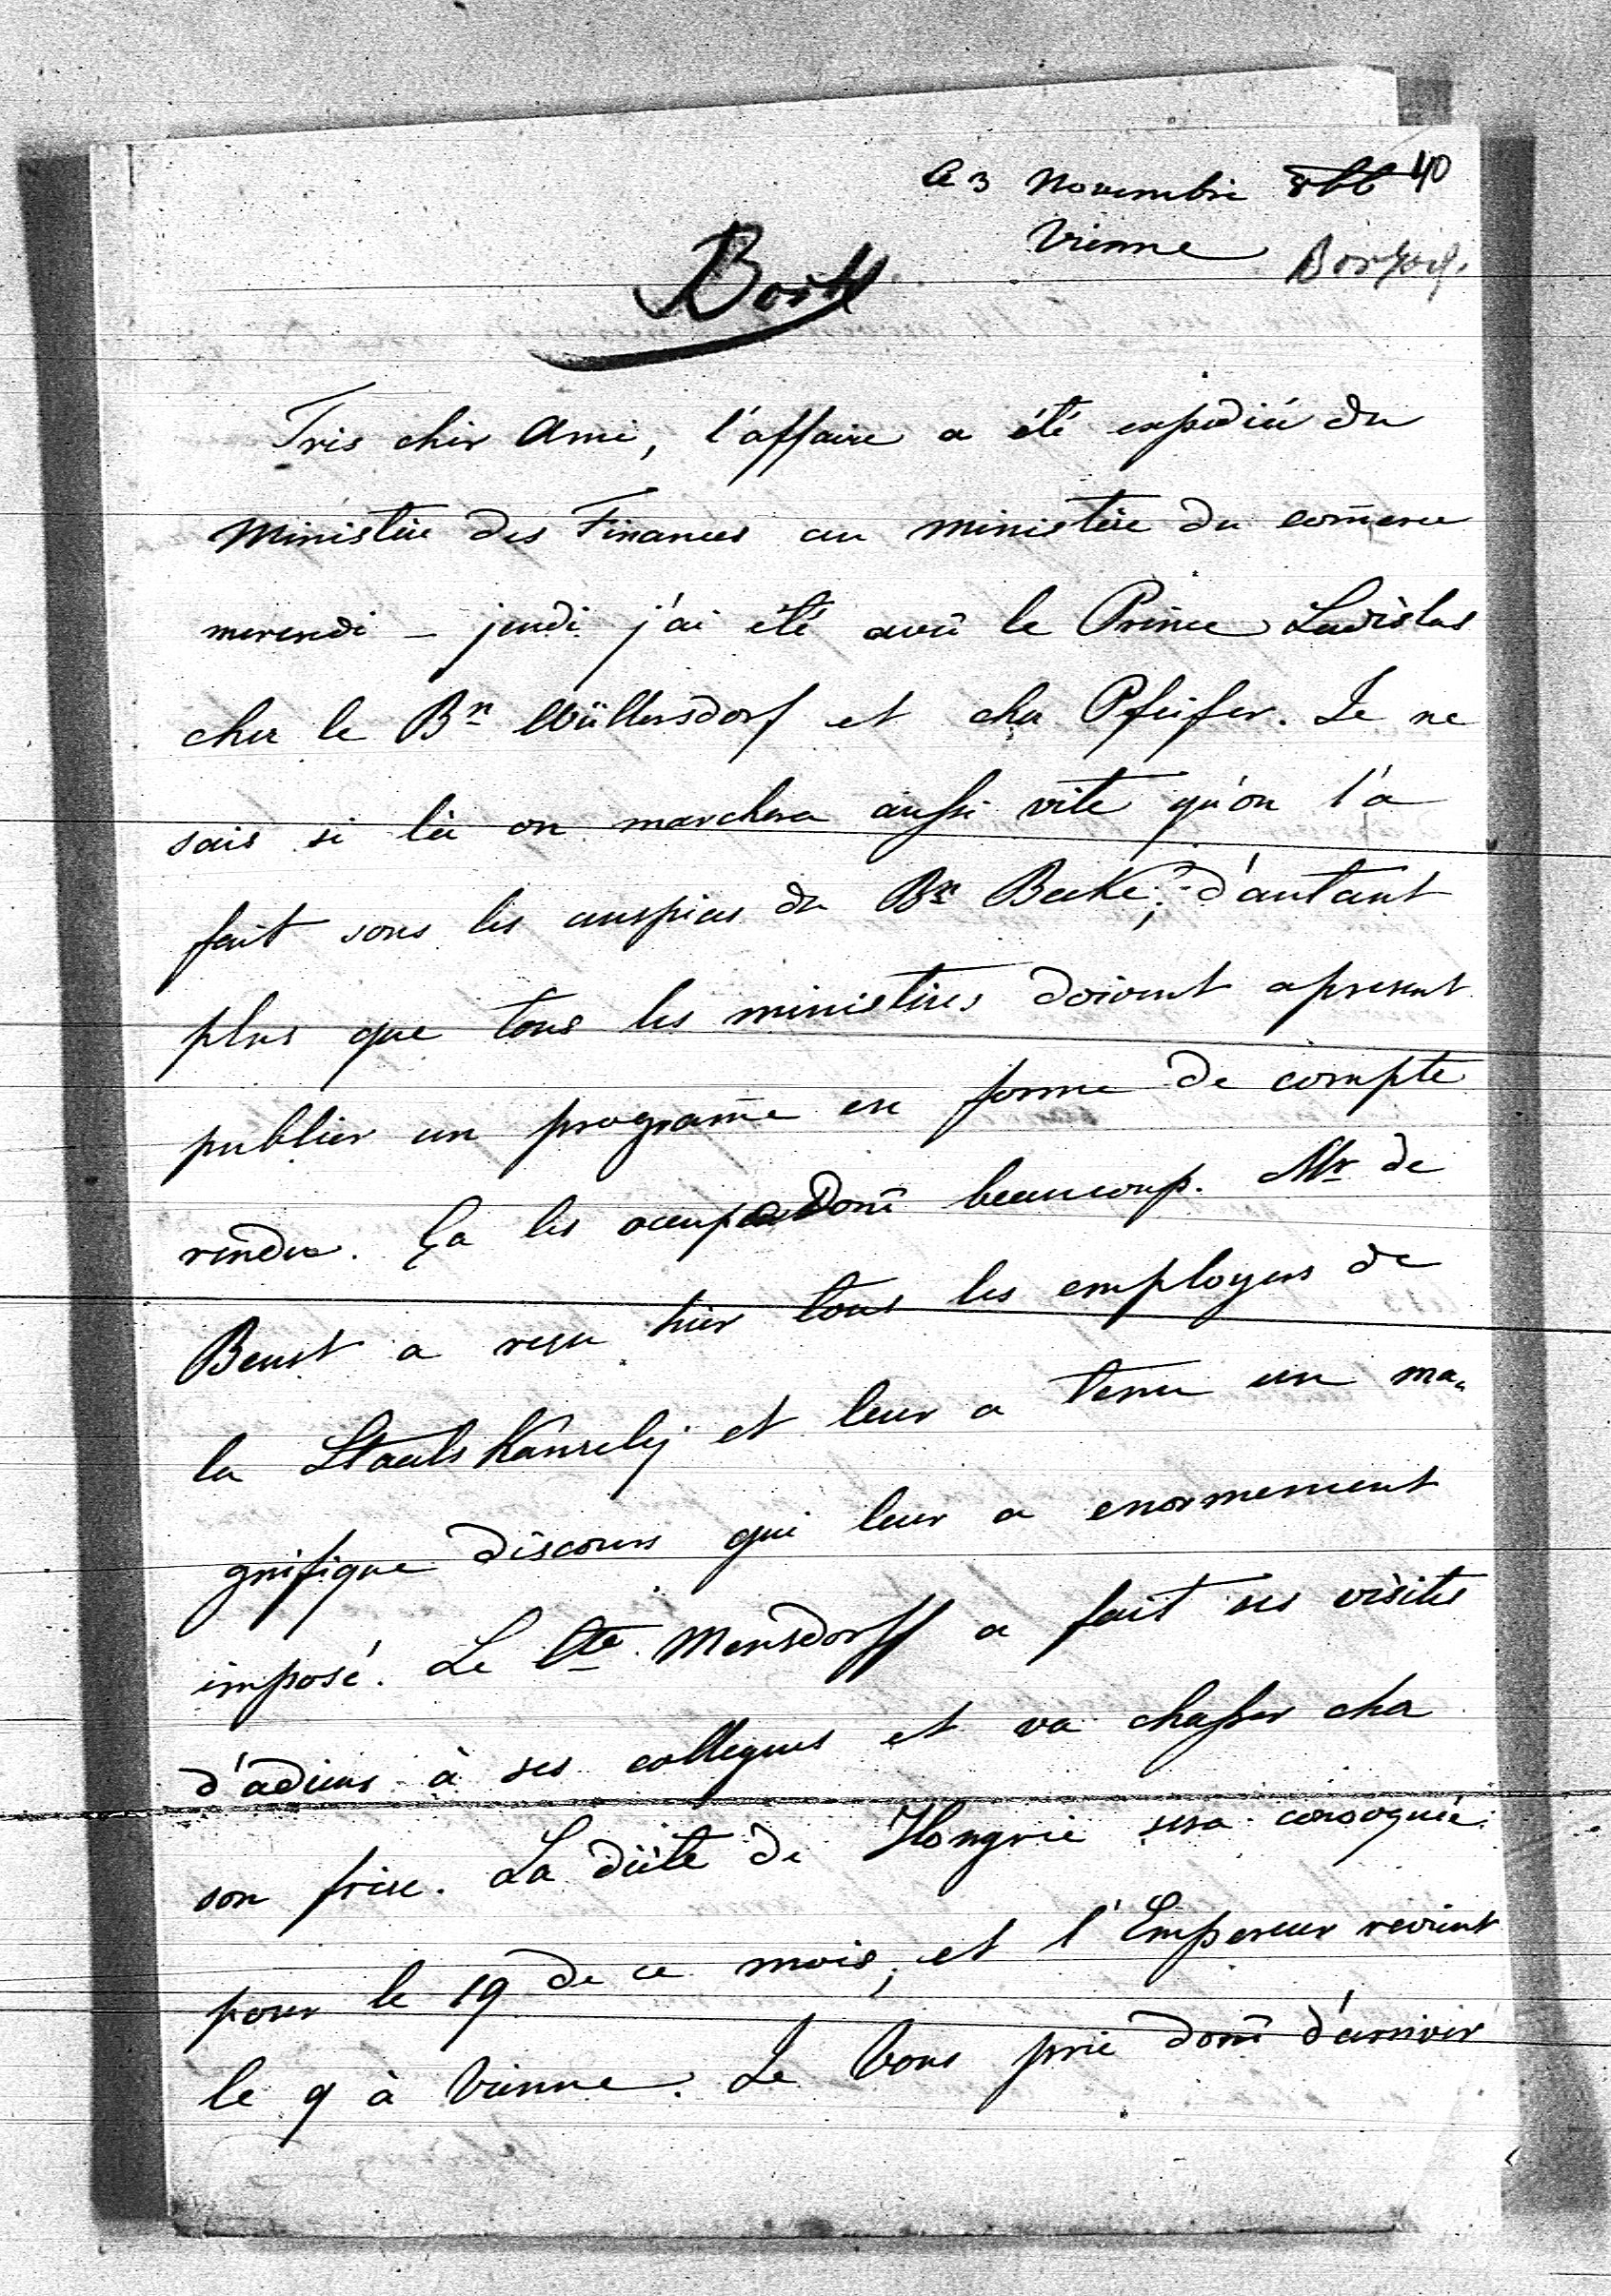 le 3 Novembre 866 40
Vienne
Très cher Ami, l'affaire a été expediée du
Ministère des Finances au ministère du com̄erce
mercredi – jeudi j'ai été avec le Prince Ladislas
chez le Bn Wüllersdorf et chez Pfeifer. Je ne
sais si là on marchera aussi vite qu'on l'a
fait sous les auspices du Bn Becke; d'autant
plus que tous les ministères doivent apresent
publier un program̄e en forme de compte
rendu. Ça les occupe donc beaucoup. Mr de
Beust a reçu hier tous les employers de
la Staatskanzlej et leur a tenu un ma-
gnifique discours qui leur a enormement
imposé. Le Cte Mensdorff a fait ses visites
d'adieus à ses collegues et va chasser chez
son frère. La diète de Hongrie sera convoquée
pour le 19 de ce mois, et l'Empereur revient
le 9 à Vienne. Je Vous prie donc d'arriver